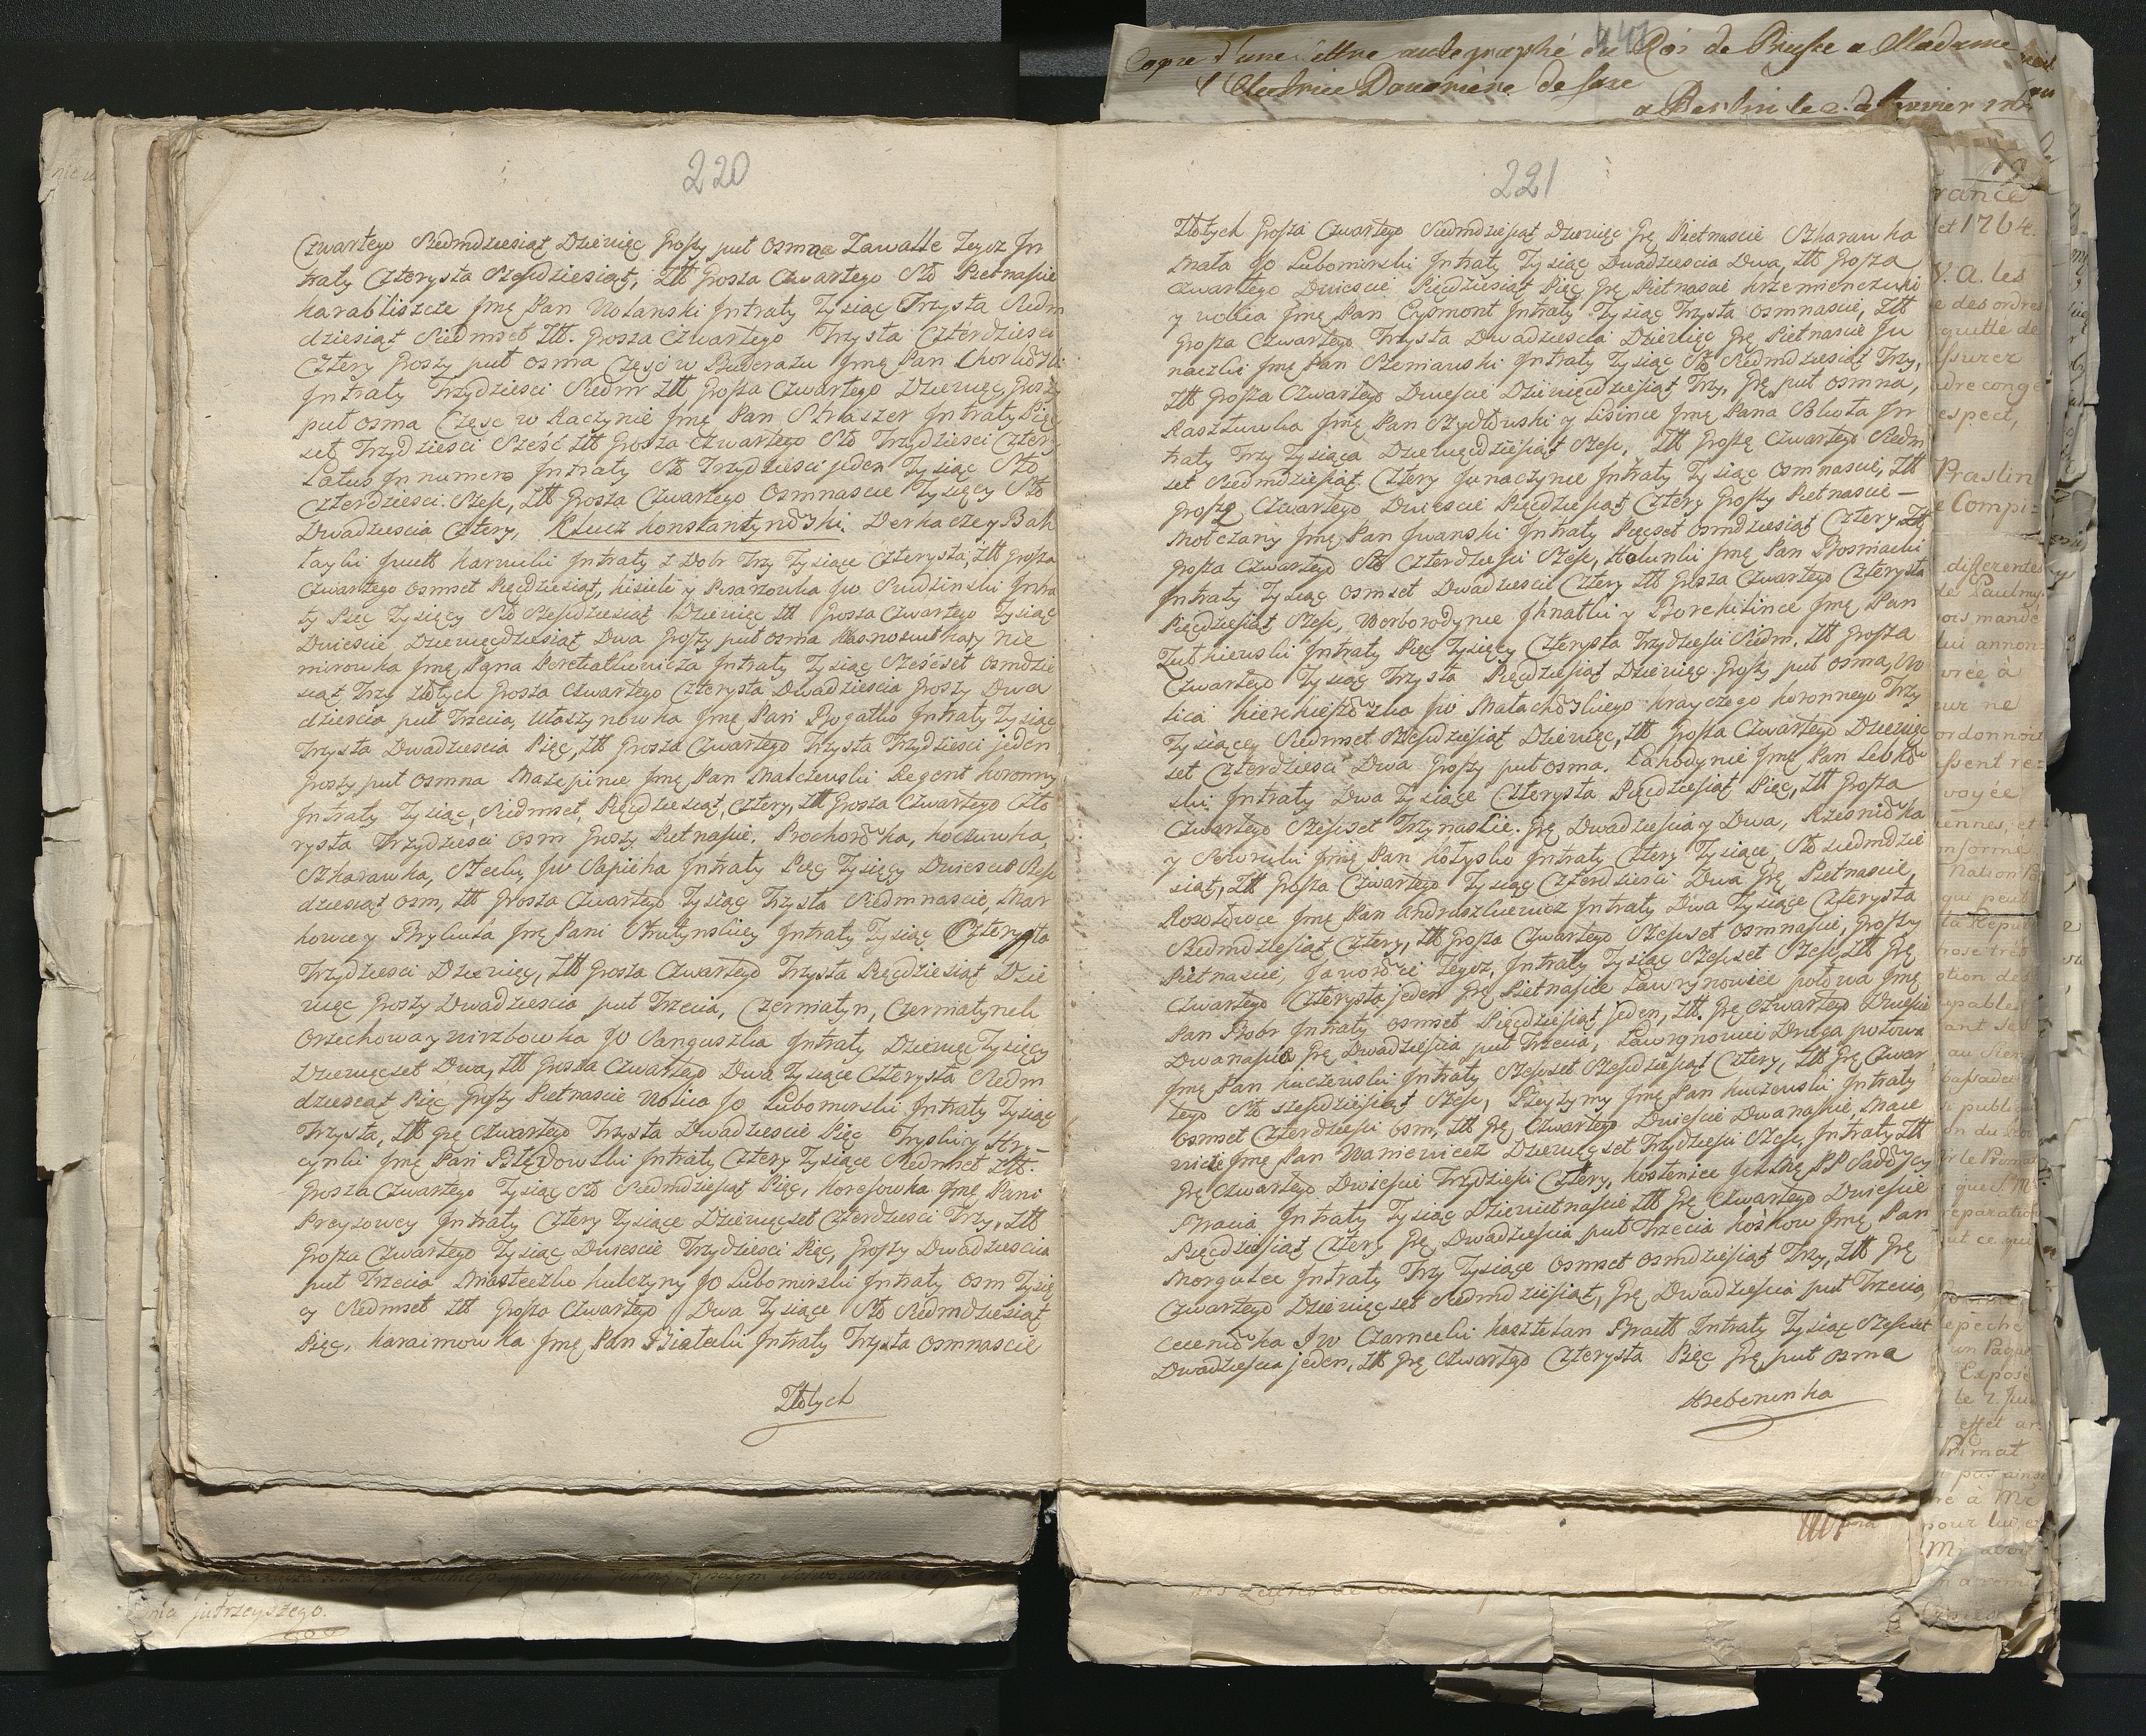 220
Czwartego Siedmdziesiąt Dziewięc Groszy puł osmna Zawalle Tegoz In
traty Czterysta Szesdziesiąt, Złł Grosza Czwartego Sto Pietnascie
Karabliszcze Jmę Pan Wolanski Intraty Tysiąc Trzysta Siedm
dziesiąt Siedmset Złł. Grosza Czwartego Trzysta Czterdziesci
Cztery Groszy puł osma Częsc w Buderazu Jmę Pan
Intraty Trzydziesci Siedm Złł Grosza Czwartego Dziewięc, Groszy
puł osma Częsc w Raczynie Jmę Pan Straszer Intraty Pięc
set Trzydziesci Szesć Złł Grosza Czwartego Sto Trzydziesci Cztery
Latus In numero Intraty Sto Trzydziesci jeden Tysiąc Sto
Czterdziesci Szesc, Złł Grosza Czwartego Osmnascie Tysięcy Sto
Dwadziescia Cztery, Klucz Konstantynowski. Derkacze y Bah
layki Jmę Karwicki Intraty z Dobr Trzy Tysiące Czterysta, Złł Grosza
Czwartego osmset Pięcdziesiąt, Kisieli y Pisarzowka Jw Rudzinski Intra
ty Pięc Tysięcy Sto Szesdziesiąt Dziewięc Złł Grosza Czwartego Tysiąc
Dwiescie Dziewięcdziesiąt Dwa Groszy puł osma Krasnosiułka y Nie
mirowka Jmę Pana Peretiatkowicza Intraty Tysiąc Szescset osmdzie
siąt Trzy Złłtych Grosza Czwartego Czterysta Dwadziescia Groszy Dwa
dziescia puł Trzecia, Własynowka Jmę Pan Bogatko Intraty Tysiąc
Trzysta Dwadziescia Pięc, Złł Grosza Czwartego Trzysta Trzydziesci jeden
Groszy puł osmna Mazepince Jmę Pan Malczewski Regent Koronny
Intraty Tysiąc, Siedmset, Pięcdziesiąt, Cztery, Złł Grosza Czwartego Czte
rysta Trzydziesci Osm Groszy Pietnascie. Prochorowka, Koczuwka,
Szkarawka, Stecki, Jw Sapieha Intraty Pięc Tysięcy Dwiescie Szesc
dziesiąt osm, Złł Grosza Czwartego Tysiąc Trzysta Siedmnascie, Mar
kowce y Prykuta Jmę Pani Strutynskiey Intraty Tysiąc Czterysta
Trzydziesci Dziewięc, Złł Grosza Czwartego Trzysta Pięcdziesiąt Dzie
więc Groszy Dwadziescia puł Trzecia, Czermatyn, Czermatynek
Orzechowa y Wirzbowka Jo Sanguszka Intraty Dziewięc Tysięcy
Dziewięcset Dwa, Złł Grosza Czwartego Dwa Tysiące Czterysta Siedm
dziesiąt Pięc Groszy Pietnascie Wolica Jo Lubomirski Intraty Tysiąc
Trzysta, Złł Grę Czwartego Trzysta Dwadziescie Pięc
cynki Jmę Pan Błędowski Intraty Cztery Tysiące Siedmset Złł.
Grosza Czwartego Tysiąc Sto Siedmdziesiąt Pięc, Koresowka Jmę Pani
Preysowey Intraty Cztery Tysiące Dziewięcset Czterdziesci Trzy, Złł
Grosza Czwartego Tysiąc Dwiescie Trzydziesci Pięc, Groszy Dwadziescia
puł Trzecia Miasteczko Kulczyny Jo Lubomirski Intraty Osm Tysię
cy Siedmset Złł Grosza Czwartego Dwa Tysiące Sto Siedmdziesiąt
Pięc, Karaimowka Jmę Pan Białecki Intraty Trzysta Osmnascie
Złłtych
221
Złłtych Grosza Czwartego Siedmdziesiąt Dziewięc Grę Pietnascie Szkarawka
Mała Jo Lubomirski Intraty Tysiąc Dwadziescia Dwa, Złł Grosza
Czwartego Dwiescie Pięcdziesiąt Pięc Grę Pietnascie Krzemienczuki
y Wolica Jmę Pan Cygmont Intraty Tysiąc Trzysta osmnascie, Złł
Grosza Czwartego Trzysta Dwadziescia Dziewięc Grę Pietnascie Ju
naczki Jmę Pan Szemiawski Intraty Tysiąc Sto Siedmdziesiąt Trzy,
Złł Grosza Czwartego Dwiescie Dziewięcdziesiąt Trzy, Grę puł osmna,
Raszłuwka Jmę Pan Szydłowski y Lisince Jmę Pana In
traty Trzy Tysiąca Dziewięcdziesiąt Szesc, Złł Groszę Czwartego Siedm
set Siedmdziesiąt Cztery Junaczynce Intraty Tysiąc Osmnascie, Złł
Groszę Czwartego Dwiescie Pięcdziesiąt Cztery Groszy Pietnascie —
Mołczany Jmę Pan Iwanski Intraty Pięcset osmdziesiąt Cztery, Złł
Grosza Czwartego Sto Czterdziesci Szesc, Hołunki Jmę Pan Bosniacki
Intraty Tysiąc osmset Dwadziescie Cztery Złł Grosza Czwartego Czterysta
Pięcdziesiąt Szesc, Werborodynce Ihnatki y Borchilince Jmę Pan
Intraty Pięc Tysięcy Czterysta Trzydziesci Siedm, Złł Grosza
Czwartego Tysiąc Trzysta Pięcdziesiąt Dziewięc Groszy puł osma, Wo
lica Jw Małachowskiego Krayczego Koronnego Trzy
Tysiącey Siedmset Szesdziesiąt Dziewięc, Złł Grosza Czwartego Dziewięc
set Czterdziesci Dwa Groszy puł osma. Lahodynce Jmę Pan
ski Intraty Dwa Tysiące Czterysta Pięcdziesiąt Pięc, Złł Grosza
Czwartego Szescset Trzynascie. Grę Dwadziescia y Dwa, Rzesniowka
y Jmę Pan Kołysko Intraty Cztery Tysiące, Sto siedmdzie
siąt, Złł Grosza Czwartego Tysiąc Czterdziesci Dwa Grę Pietnascie,
Rosołowce Jmę Pan Andruszkiewicz Intraty Dwa Tysiące Czterysta
Siedmdziesiąt Cztery, Złł Grosza Czwartego Szescset Osmnascie, Groszy
Pietnascie, Jaworowce Tegoz, Intraty Tysiąc Szescset Szesc, Złł Grę
Czwartego Czterysta jeden Grę Pietnascie Lawrynowce połowa Jmę
Pan Bobr Intraty osmset Pięcdziesiąt jeden, Złł. Grę Czwartego Dwiescie
Dwanascie Grę Dwadziescia puł Trzecia, Lawrynowce Druga połowa
Jmę Pan Kuczewski Intraty Szescset Szesdziesiąt Cztery, Złł Grę Czwar
tego Sto szesdziesiąt Szesc, Jmę Pan Kuczewski Intraty
osmset Czterdziesci osm, Złł Grę Czwartego Dwiescie Dwanascie, Mace
wicze Jmę Pan Waniewicz Dziewięcset Trzydziesci Szesc, Intraty Złł
Grę Czwartego Dwiescie Trzydziesci Cztery, Kosteniec PP Sadowscy
Bracia Intraty Tysiąc Dziewietnascie Złł Grę Czwartego Dwiescie
Pięcdziesiąt Cztery Grę Dwadziescia puł Trzecia Koskow Jmę Pan
Morgulec Intraty Trzy Tysiące Osmset osmdziesiąt Trzy, Złł Grę
Czwartego Dziewięcset Siedmdziesiąt, Grę Dwadziescia puł Trzecia,
Ceceniowka Jw Czarnecki Kasztelan Bracłł Intraty Tysiąc Szescset
Dwadziescia jeden, Złł Grę Czwartego Czterysta Pięc Grę puł osma
Hrebeninka
Copie d'une lettre autographé du Roi de Prusse a Madame
l'Electrice Douariere de Saxe
a Berlin le 2
jutrzeyszego.